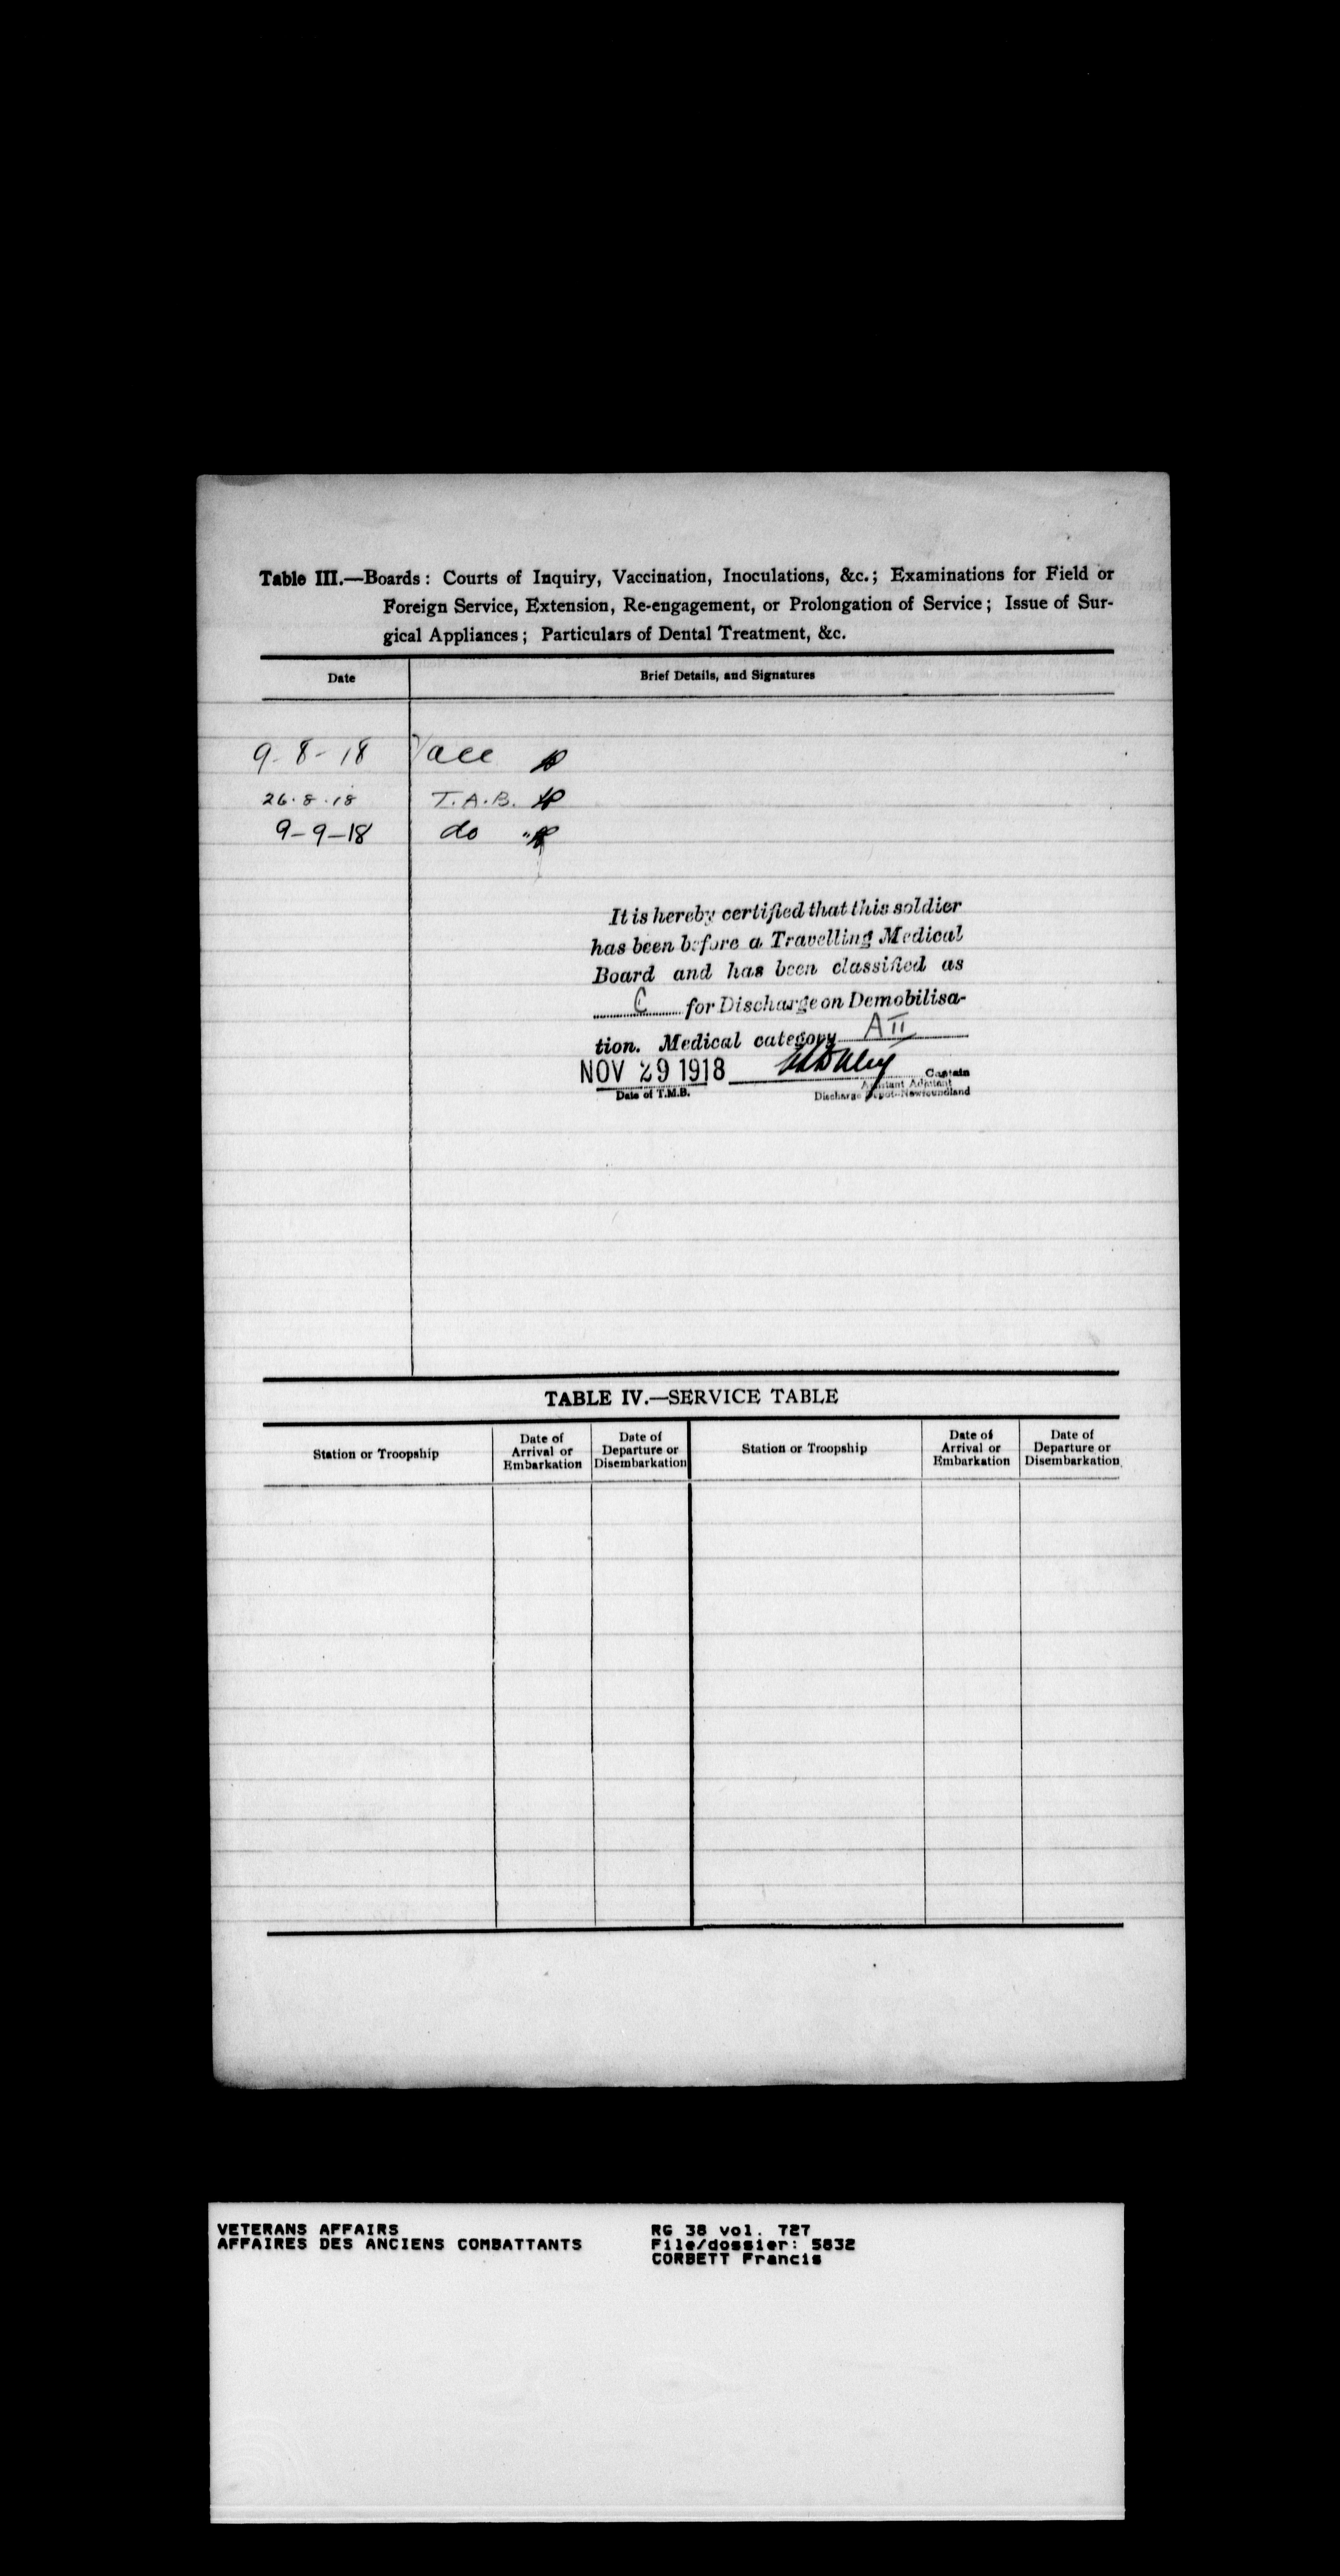 Table III.—Boards: Courts of Inquiry, Vaccination, Inoculations, &c.; Examinations for Field or
Foreign Service, Extension, Re-engagement, or Prolongation of Service; Issue of Sur-
gical Appliances; Particulars of Dental Treatment, &c.
Date Brief Details, and Signatures
9-8-18 Vacc
26.8.18 T.A.B.
9-9-18 do
It is hereby certified that this soldier
has been before a Travelling Medical
Board and has been classified as
C for Discharge on Demobilisa-
tion. Medical category A II
NOV 29 1918 Captain
Assistant Adjutant
Date of T.M.B. Discharge Depot-Newfoundland
TABLE IV.—SERVICE TABLE
Station or Troopship Date of Arrival or Embarkation Date of Departure or Disembarkation Station or Troopship Date of Arrival or Embarkation Date of Departure or Disembarkation
VETERANS AFFAIRS RG 38 vol. 727
AFFAIRES DES ANCIENS COMBATTANTS File/dossier: 5832
CORBETT Francis